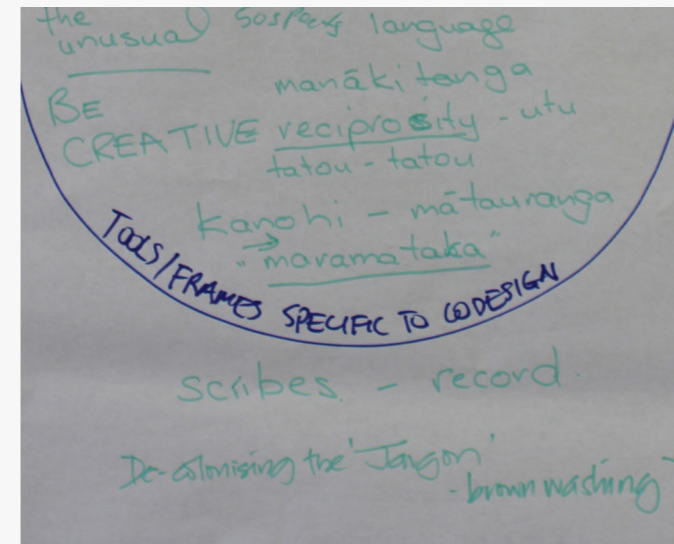 the unusual
sospects language
manākitanga
BE
CREATIVE
reciprosity - utu
tatou - tatou
Kanohi - mātauranga
→
"maramataka"
TOOLS/FRAMES SPECIFIC TO CODESIGN
scribes. - record.
De-colonising the 'Jargon'
- brown washing